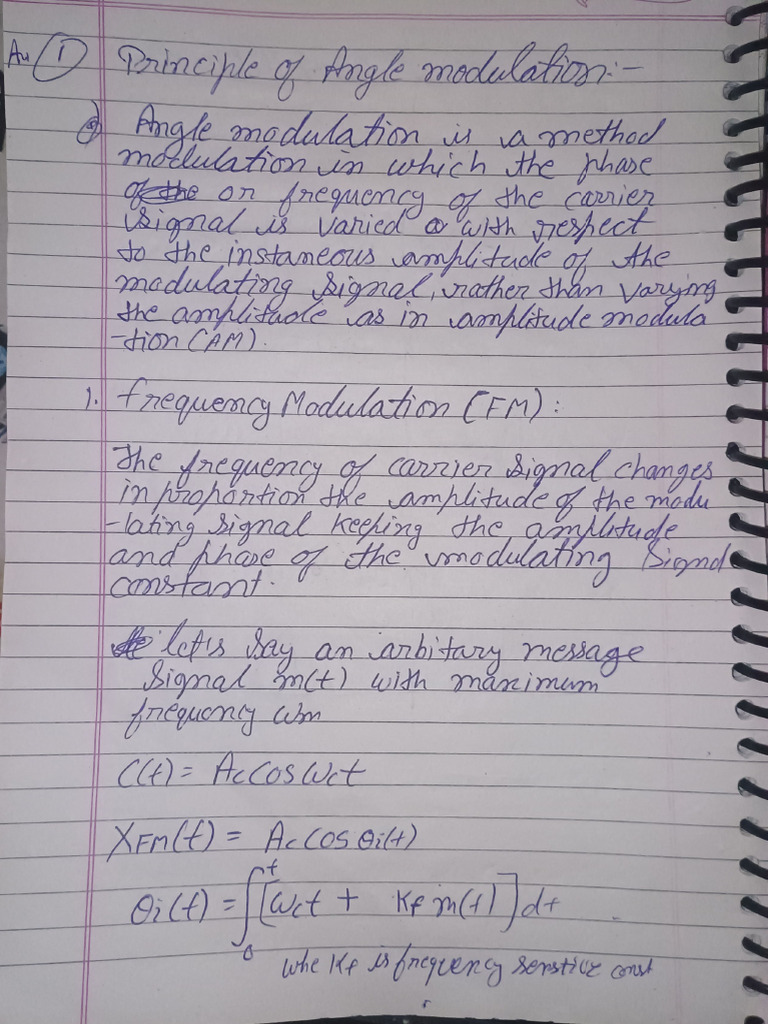 Ans ① Principle of Angle modulation:-
Angle modulation is a method
modulation in which the phase
of the or frequency of the carrier
signal is varied with respect
to the instaneous amplitude of the
modulating signal, rather than varying
the amplitude as in amplitude modula
-tion (AM).
1. frequency Modulation (FM):
The frequency of carrier signal changes
in proportion the amplitude of the modu
-lating signal keeping the amplitude
and phase of the modulating signal
constant.
let's say an arbitary message
signal m(t) with maximum
frequency ωm
C(t) = Ac Cos ωct
XFM(t) = Ac Cos θi(t)
θi(t) = ∫₀ᵗ [ωct + Kf m(t)] dt
whe Kf is frequency senstive const